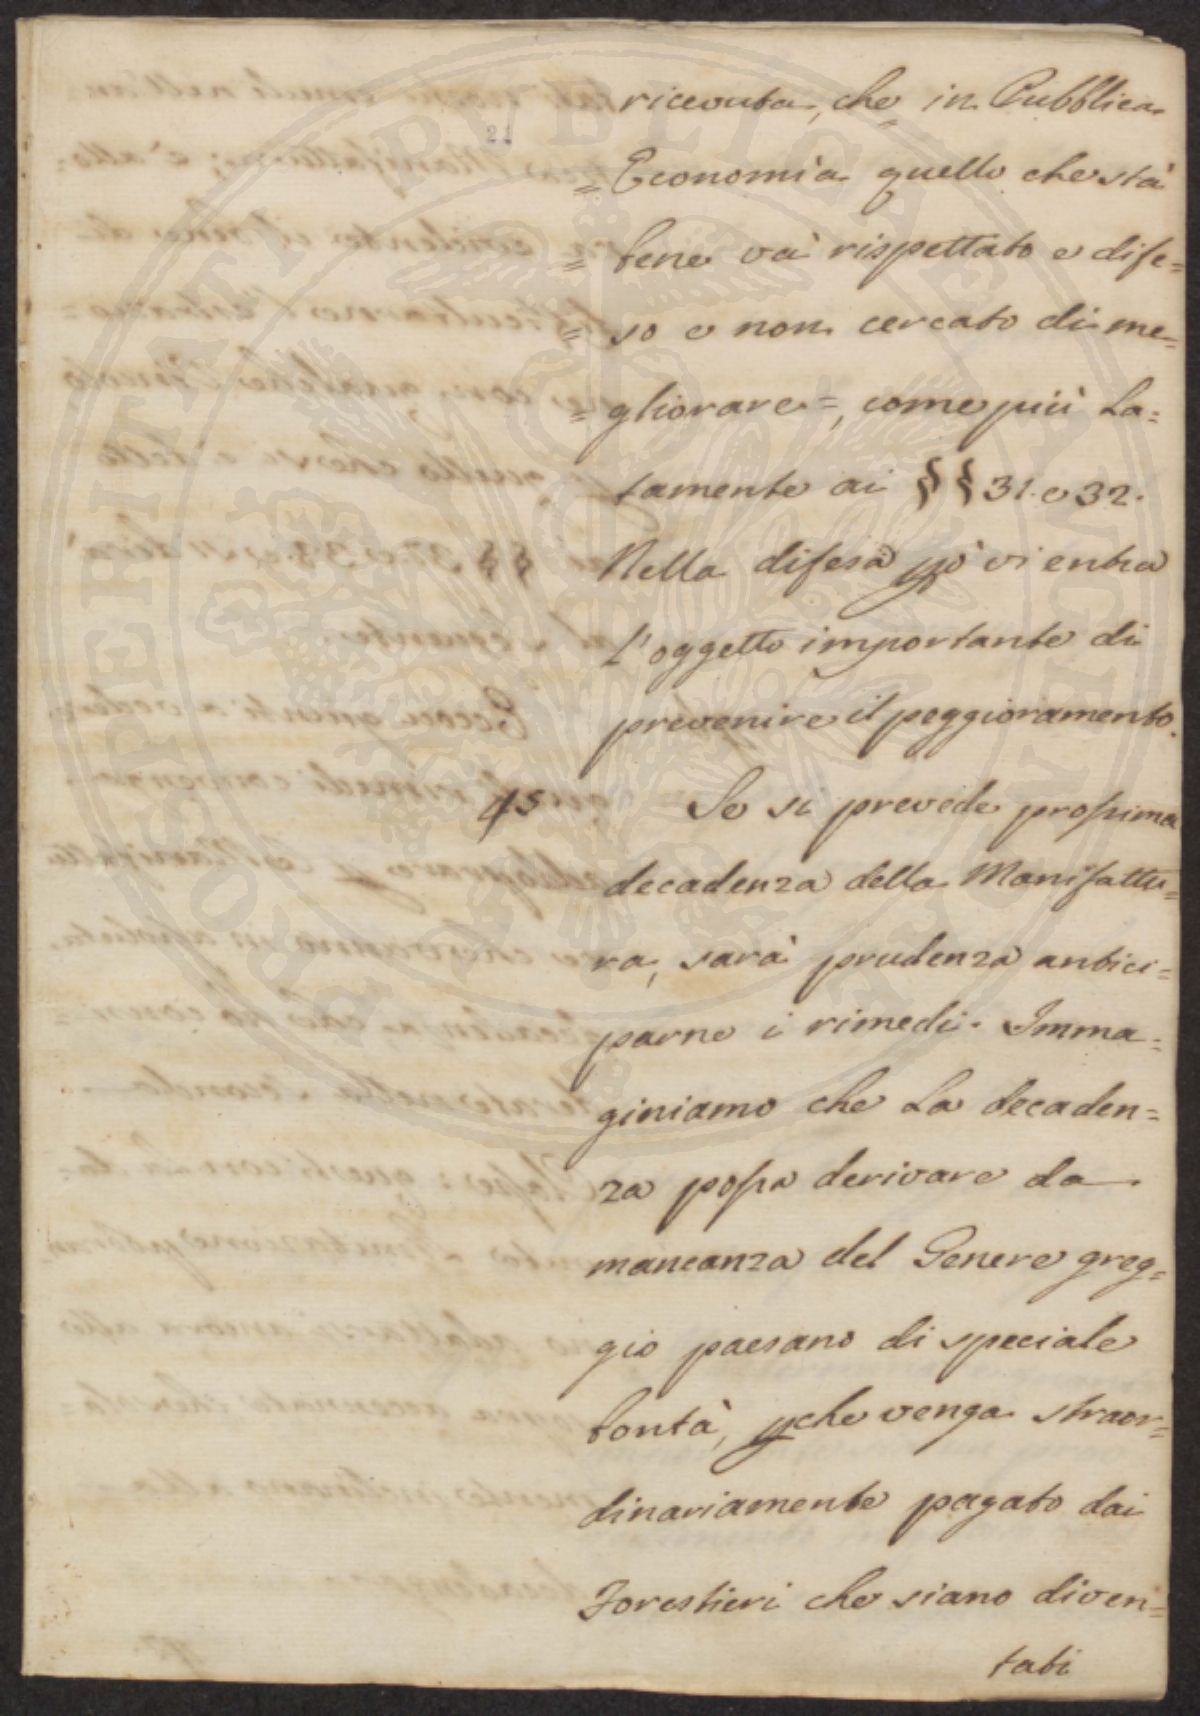 ricevuta, che in Pubblica
= Economìa quello che stà
= bene và rispettato e dife=
= so e non cercato di me=
= gliorare =, come più La=
tamente ai §§ 31. e 32.
Nella difesa però vi entra
l'oggetto importante di
prevenire il peggioramento.
45 Se si prevede prossima
decadenza della Manifattu=
ra, sarà prudenza antici=
parne i rimedii. Imma=
giniamo che La decaden=
za possa derivare da
mancanza del Genere greg=
gio paesano di speciale
bontà, perche venga straor=
dinariamente pagato dai
Forestieri che siano diven=
tati
21
PROSPERITATI PUBLICAE AUGENDAE